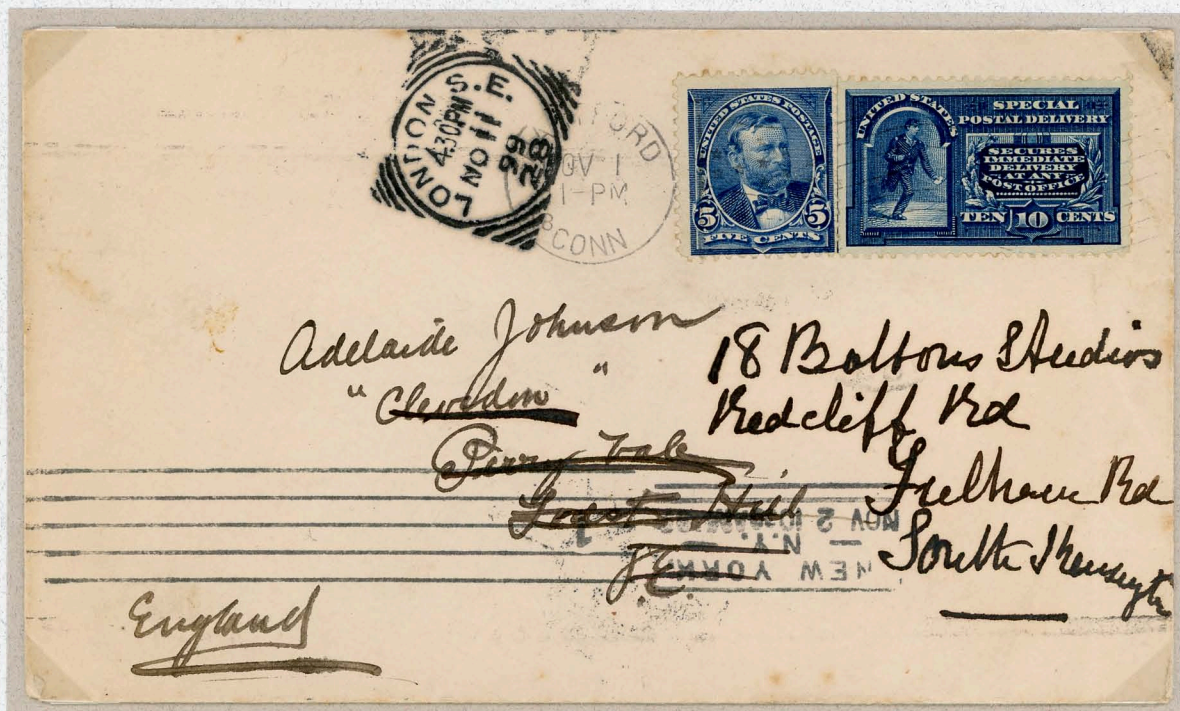 LONDON S.E.
4.30 PM
NO 11
99
28
FORD
NOV 1
1-PM
CONN
UNITED STATES POSTAGE
5 5
FIVE CENTS
UNITED STATES
SPECIAL
POSTAL DELIVERY
SECURES
IMMEDIATE
DELIVERY
AT ANY
POST OFFICE
TEN 10 CENTS
Adelaide Johnson
"Clevedon"
Perry Vale
Forest Hill
S.E.
England
18 Boltons Studios
Redcliff Rd
Fulham Rd
South Kensington
NEW YORK
N.Y.
NOV 2 10
1